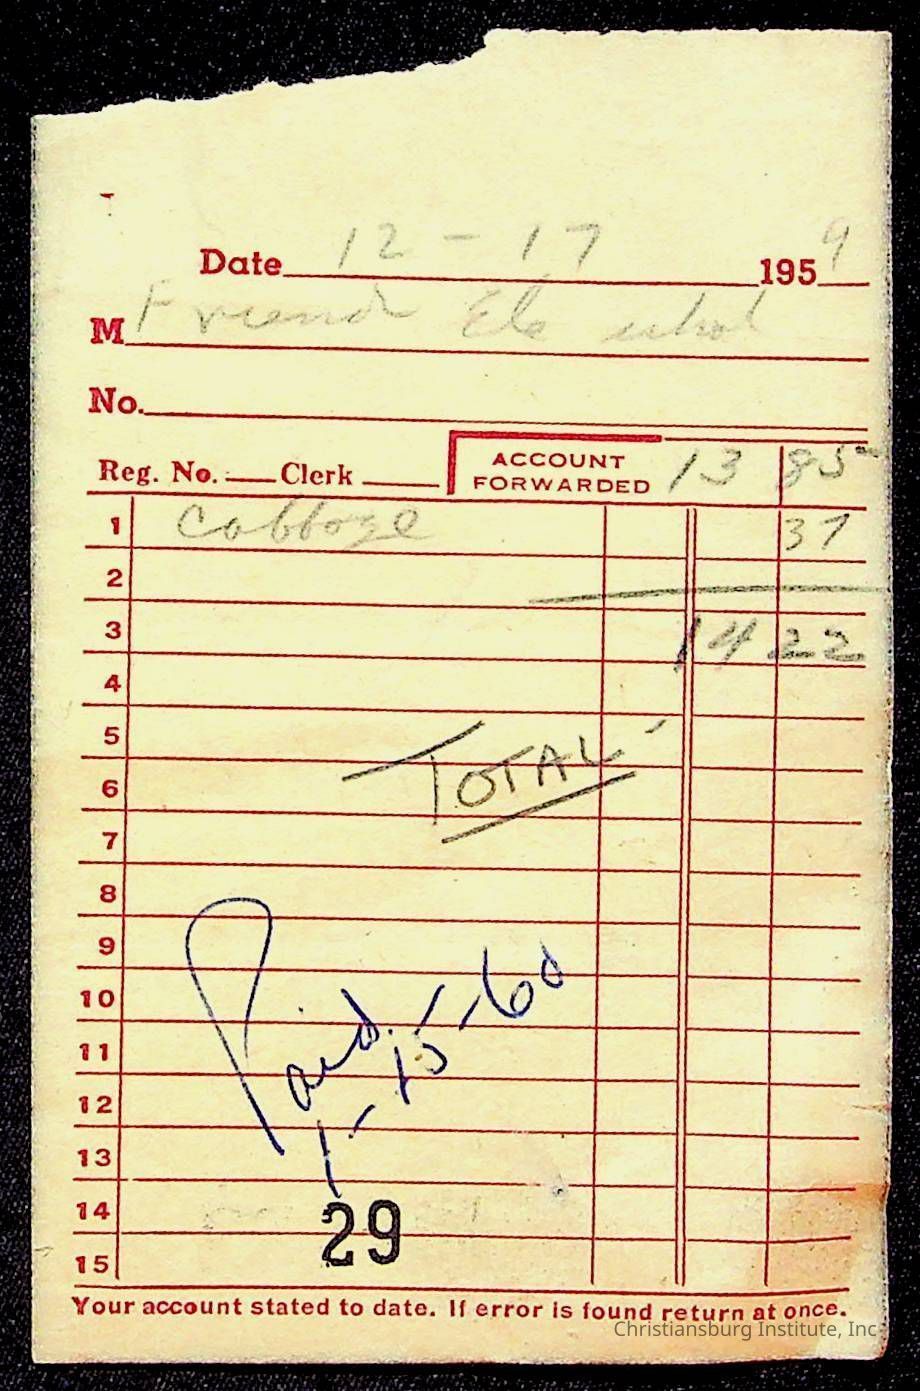 Date 12-17 1959
M Friends Ele school
No.
Reg. No. Clerk
ACCOUNT FORWARDED 13 85
1 Cabbage 37
2
3 14 22
4
5
TOTAL-
6
7
8
9
10
Paid.
1-15-60
11
12
13
14
29
15
Your account stated to date. If error is found return at once.
Christiansburg Institute, Inc